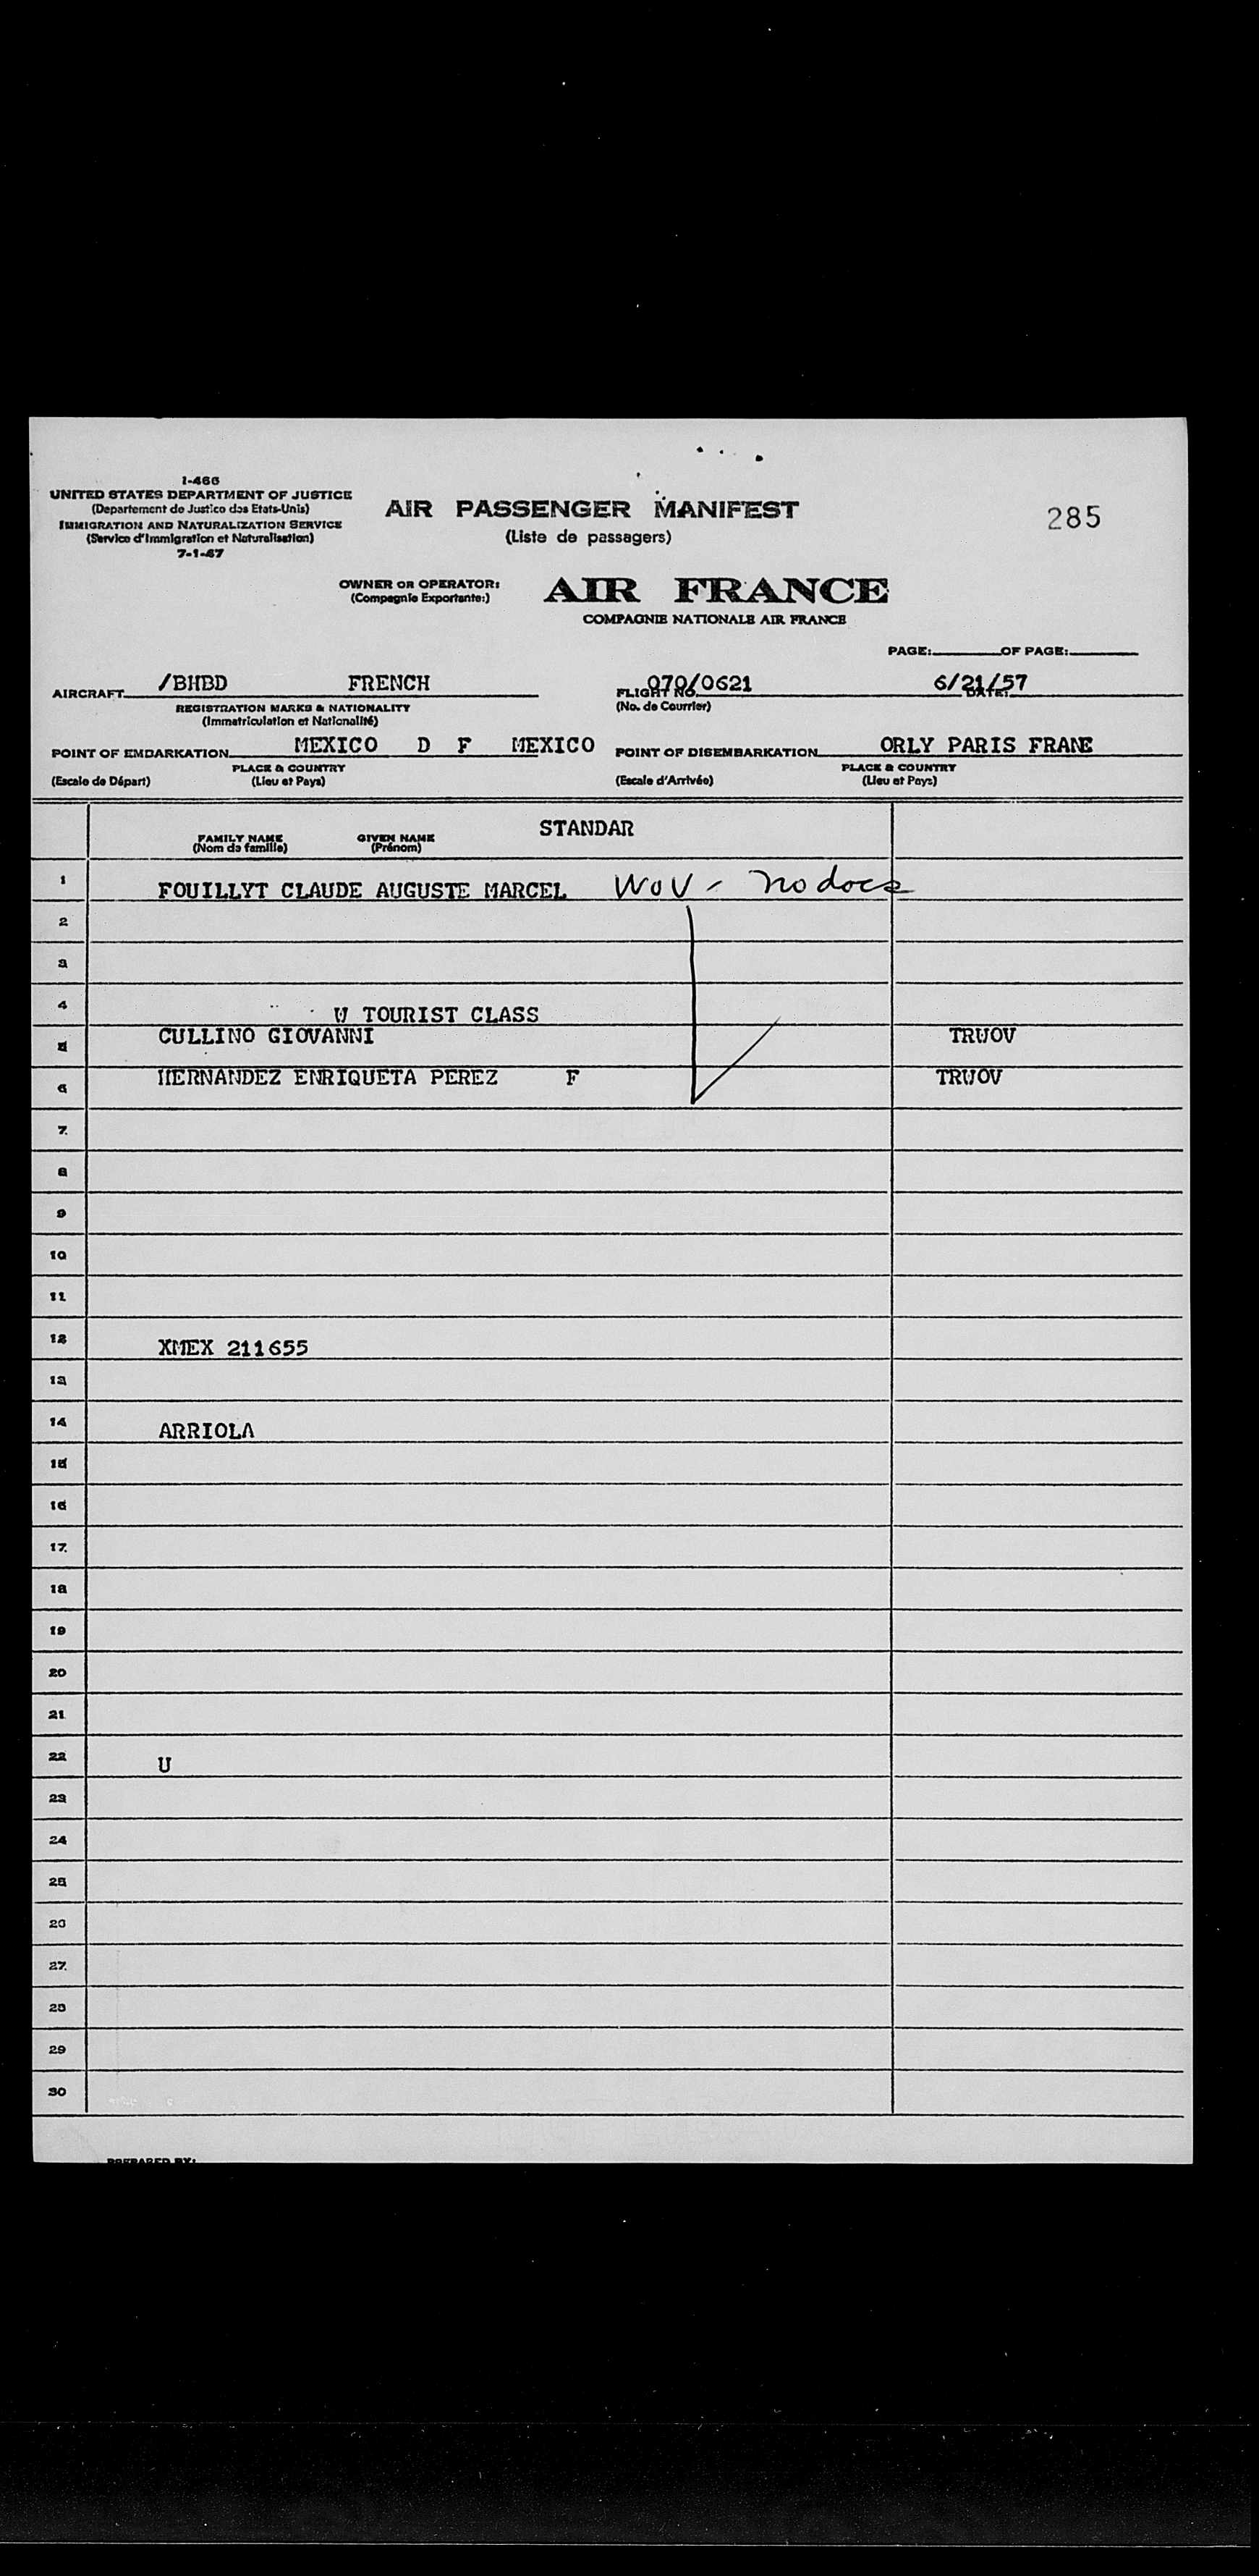 I-466
UNITED STATES DEPARTMENT OF JUSTICE
(Departement de Justice des Etats-Unis)
IMMIGRATION AND NATURALIZATION SERVICE
(Service d'Immigration et Naturalisation)
7-1-47
AIR PASSENGER MANIFEST
(Liste de passagers)
285
OWNER OR OPERATOR:
(Compagnie Exportante:)
AIR FRANCE
COMPAGNIE NATIONALE AIR FRANCE
PAGE: OF PAGE:
AIRCRAFT /BHBD FRENCH FLIGHT NO. 070/0621 DATE: 6/21/57
REGISTRATION MARKS & NATIONALITY (No. de Courrier)
(Immatriculation et Nationalité)
POINT OF EMBARKATION MEXICO D F MEXICO POINT OF DISEMBARKATION ORLY PARIS FRANE
PLACE & COUNTRY PLACE & COUNTRY
(Escale de Départ) (Lieu et Pays) (Escale d'Arrivée) (Lieu et Pays)
STANDAR
FAMILY NAME GIVEN NAME
(Nom de famille) (Prénom)
1 FOUILLYT CLAUDE AUGUSTE MARCEL WOV - no docs
2
3
4 W TOURIST CLASS
5 CULLINO GIOVANNI TRWOV
6 HERNANDEZ ENRIQUETA PEREZ F TRWOV
7
8
9
10
11
12 XMEX 211655
13
14 ARRIOLA
15
16
17
18
19
20
21
22 U
23
24
25
26
27
28
29
30
PREPARED BY: